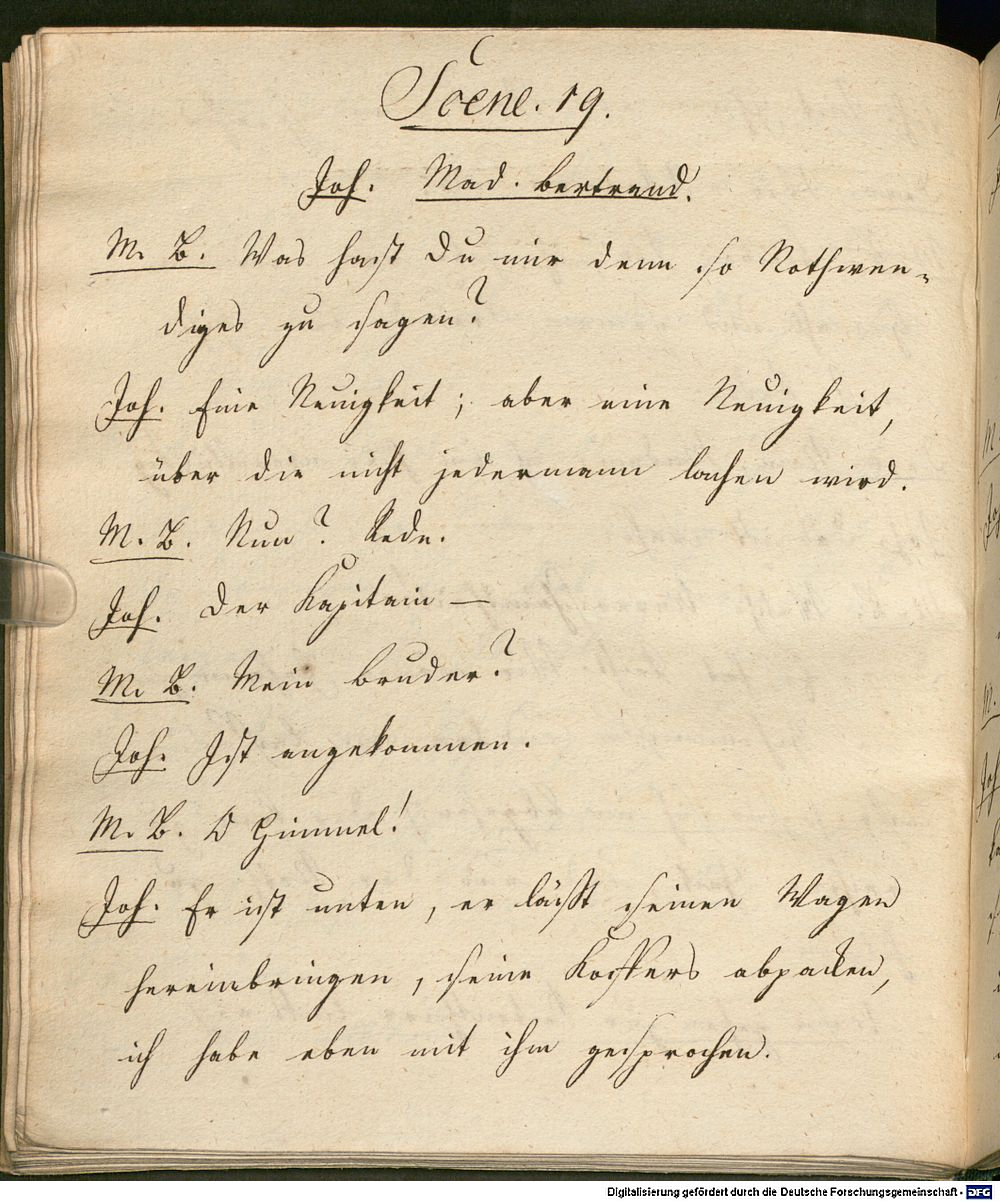 Scene. 19.
Joh. Mad. Bertrand.
M. B. Was hast du mir denn so Nothwen-
diges zu sagen?
Joh. Eine Neuigkeit; aber eine Neuigkeit,
über die nicht jedermann lachen wird.
M. B. Nun? Rede.
Joh. Der Kapitain —
M. B. Mein Bruder?
Joh. Ist angekommen.
M. B. O Himmel!
Joh. Er ist unten, er läßt seinen Wagen
hereinbringen, seine Koffers abpacken,
ich habe eben mit ihm gesprochen.
Digitalisierung gefördert durch die Deutsche Forschungsgemeinschaft - DFG